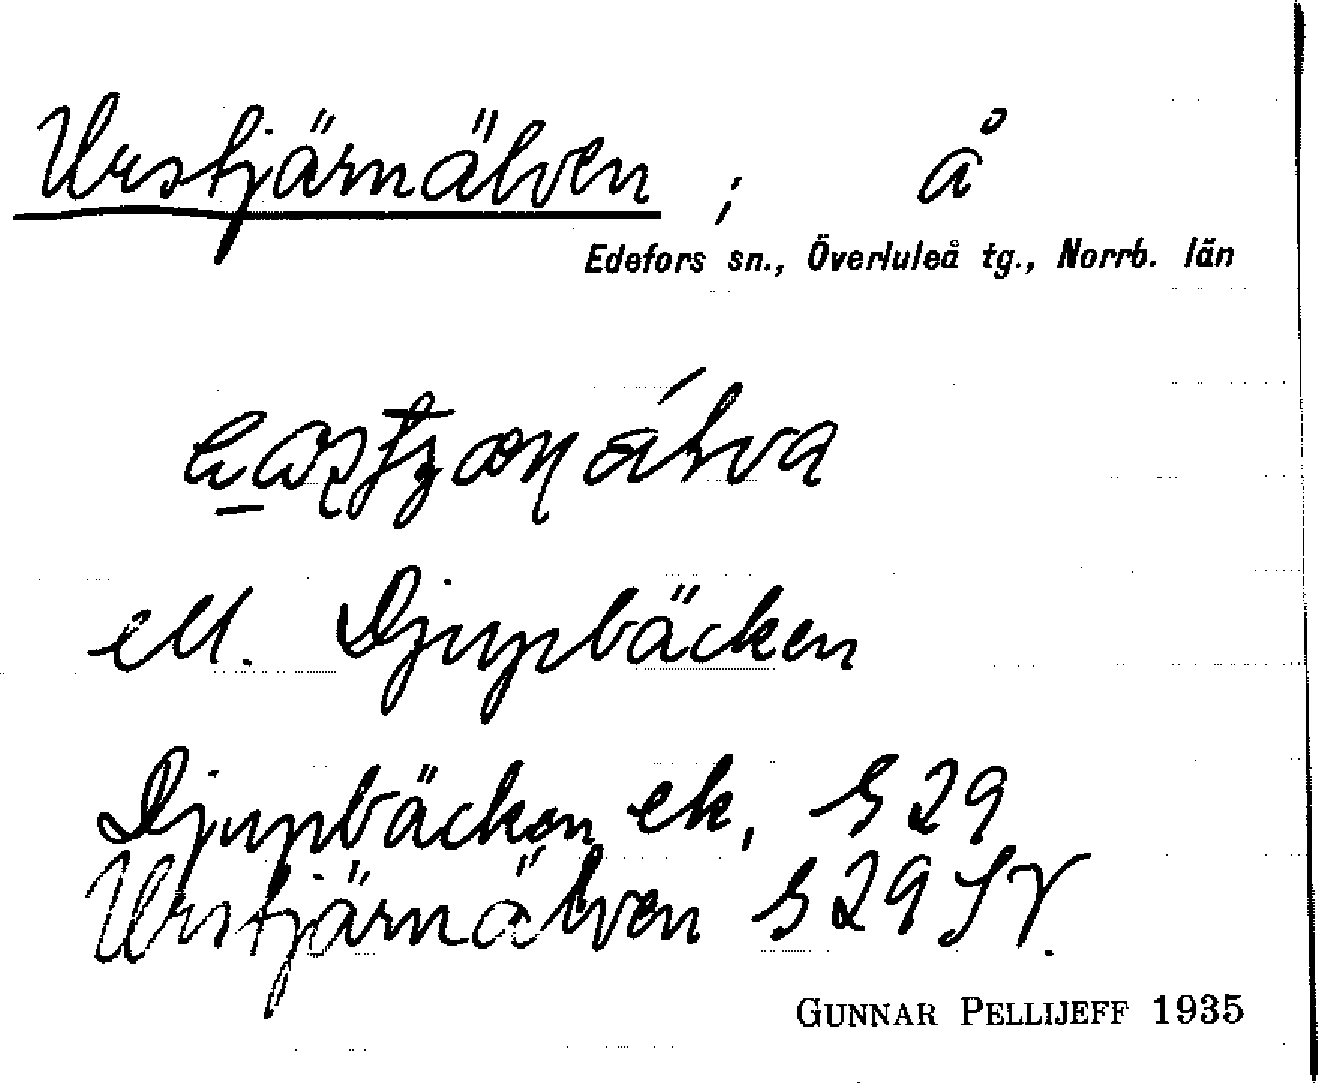 Urstjärnälven ; å
Edefors sn., Överluleå tg., Norrb. län
ell. Djupbäcken
Djupbäcken ek, S 29
Urstjärnälven S 29 SV.
GUNNAR PELLIJEFF 1935